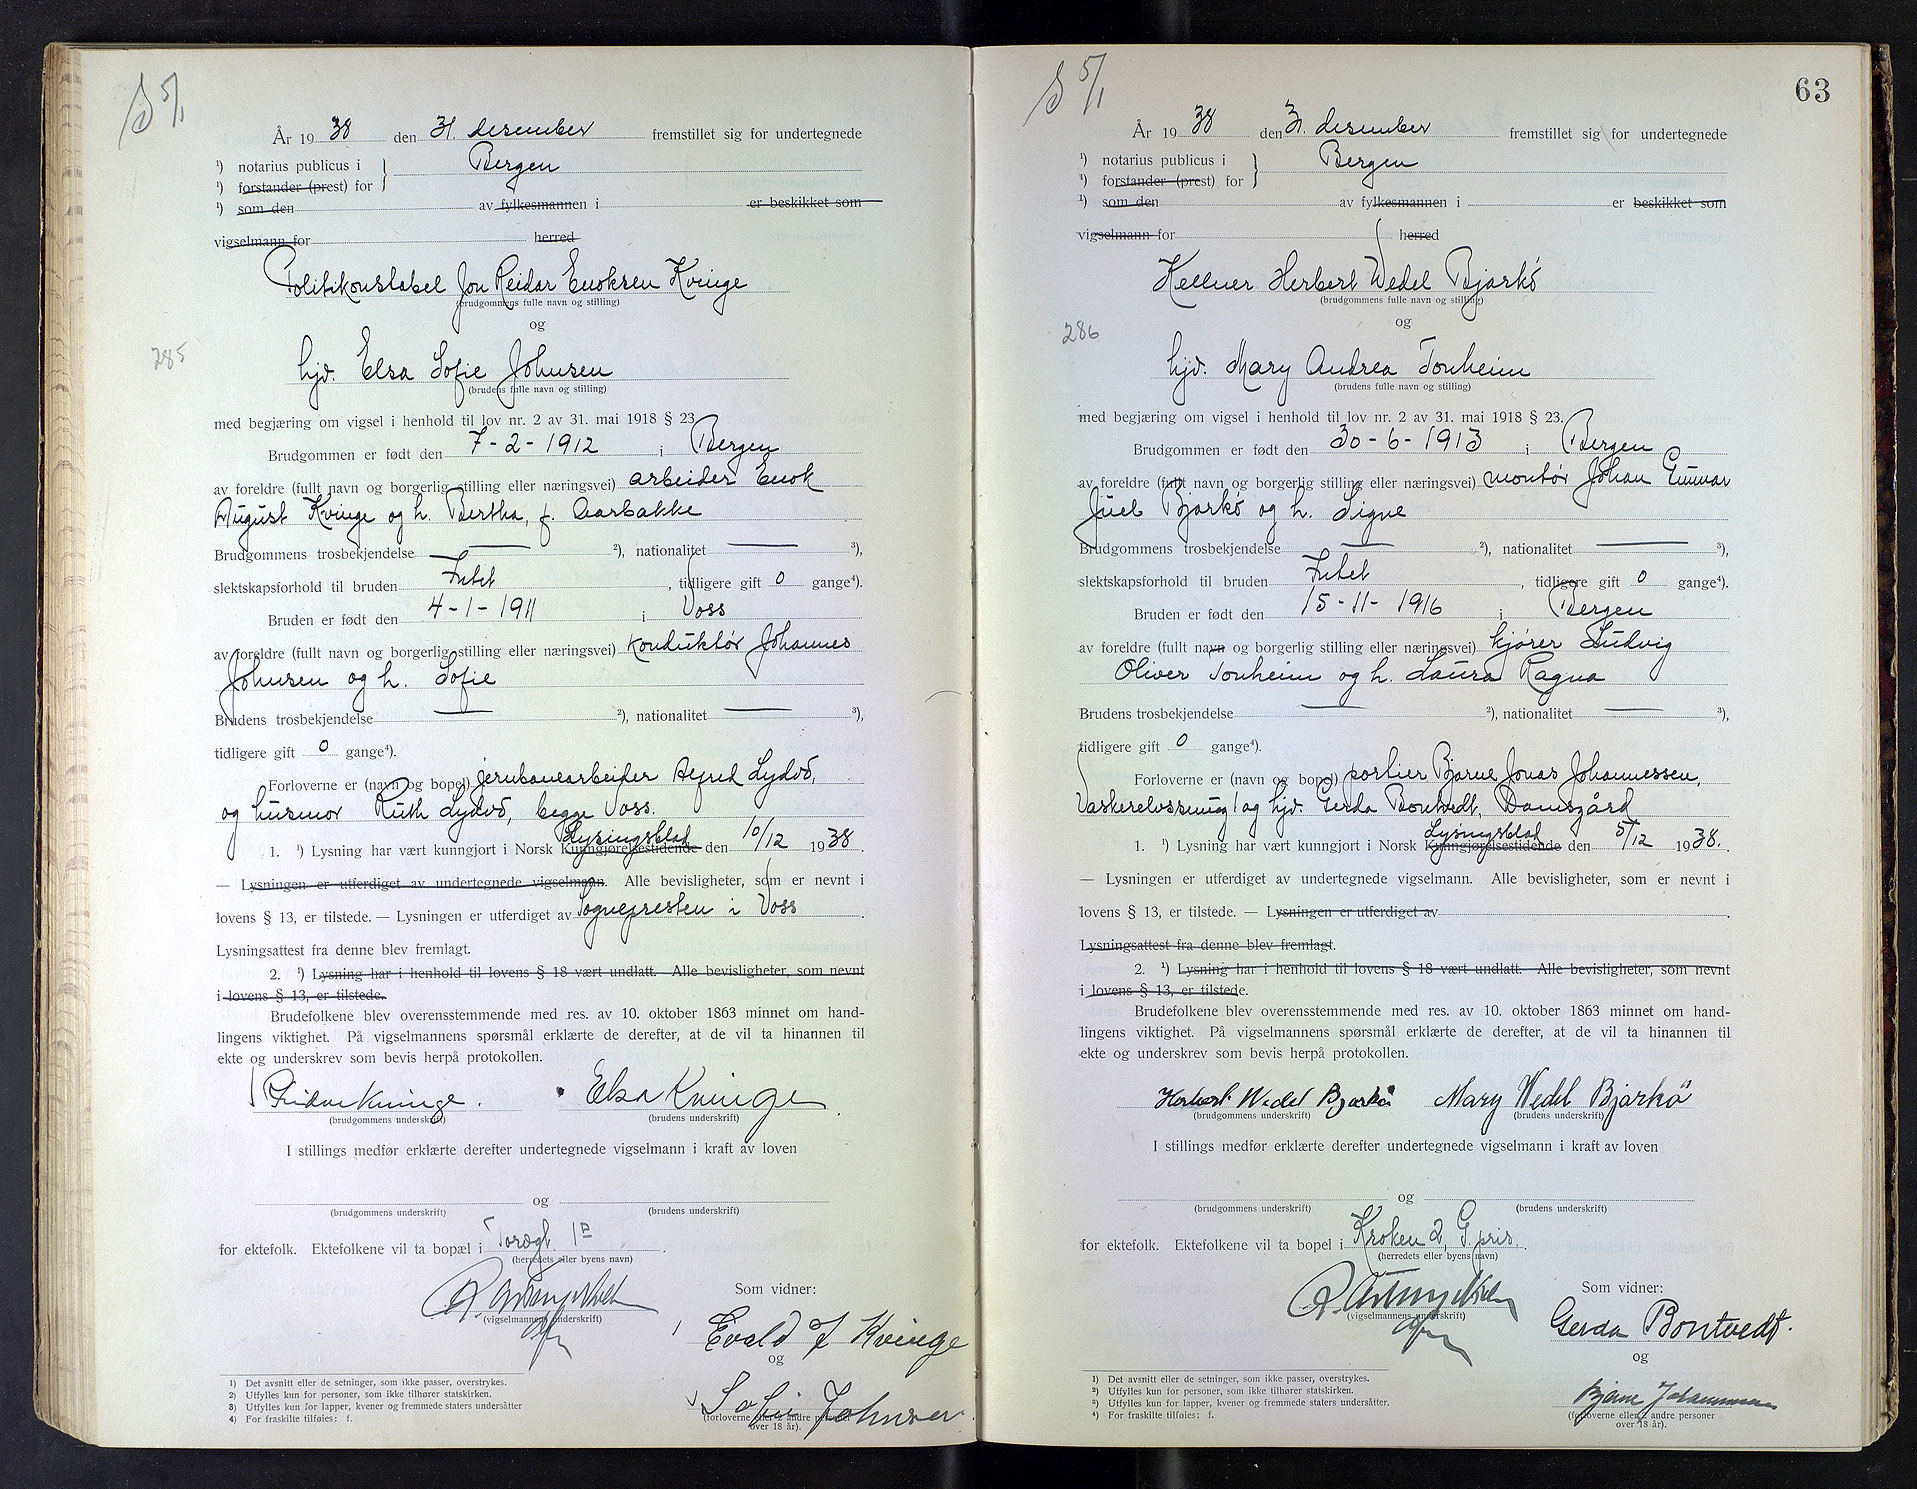 S 5/1
År 19 38 den 31. desember fremstillet sig for undertegnede
¹) notarius publicus i } Bergen
¹) forstander (prest) for
¹) som den av fylkesmannen i er beskikket som
vigselmann for herred
Politikonstabel Jon Reidar Enoksen Kvinge
(brudgommens fulle navn og stilling)
og
285
hjd. Elsa Sofie Johnsen
(brudens fulle navn og stilling)
med begjæring om vigsel i henhold til lov nr. 2 av 31. mai 1918 § 23.
Brudgommen er født den 7-2-1912 i Bergen
av foreldre (fullt navn og borgerlig stilling eller næringsvei) arbeider Enok
August Kvinge og h. Bertha, f. Aarbakke
Brudgommens trosbekjendelse — ²), nationalitet — ³),
slektskapsforhold til bruden Intet, tidligere gift 0 gange⁴).
Bruden er født den 4-1-1911 i Voss
av foreldre (fullt navn og borgerlig stilling eller næringsvei) konduktør Johannes
Johnsen og h. Sofie
Brudens trosbekjendelse — ²), nationalitet — ³),
tidligere gift 0 gange⁴).
Forloverne er (navn og bopel) jernbanearbeider Alfred Lydvo,
og husmor Ruth Lydvo, begge Voss.
Lysingsblad
1. ¹) Lysning har vært kunngjort i Norsk Kunngjørelsestidende den 10/12 1938.
— Lysningen er utferdiget av undertegnede vigselmann. Alle bevisligheter, som er nevnt i
lovens § 13, er tilstede. — Lysningen er utferdiget av Sognepresten i Voss.
Lysningsattest fra denne blev fremlagt.
2. ¹) Lysning har i henhold til lovens § 18 vært undlatt. Alle bevisligheter, som nevnt
i lovens § 13, er tilstede.
Brudefolkene blev overensstemmende med res. av 10. oktober 1863 minnet om hand-
lingens viktighet. På vigselmannens spørsmål erklærte de derefter, at de vil ta hinannen til
ekte og underskrev som bevis herpå protokollen.
Reidar Kvinge. Elsa Kvinge.
(brudgommens underskrift) (brudens underskrift)
I stillings medfør erklærte derefter undertegnede vigselmann i kraft av loven
og
(brudgommens underskrift) (brudens underskrift)
for ektefolk. Ektefolkene vil ta bopæl i Torggt. 1ᴮ.
(herredets eller byens navn)
Som vidner:
(vigselmannens underskrift)
Evald J Kvinge
og
Sofie Johnsen
(forloverne eller 2 andre personer
over 18 år).
1) Det avsnitt eller de setninger, som ikke passer, overstrykes.
2) Utfylles kun for personer, som ikke tilhører statskirken.
3) Utfylles kun for lapper, kvener og fremmede staters undersåtter
4) For fraskilte tilføies: f.
S 5/1
63
År 19 38 den 31. desember fremstillet sig for undertegnede
¹) notarius publicus i } Bergen
¹) forstander (prest) for
¹) som den av fylkesmannen i er beskikket som
vigselmann for herred
Kellner Herbert Wedel Bjørkö
(brudgommens fulle navn og stilling)
og
286
hjd. Mary Andrea Tonheim
(brudens fulle navn og stilling)
med begjæring om vigsel i henhold til lov nr. 2 av 31. mai 1918 § 23.
Brudgommen er født den 30-6-1913 i Bergen
av foreldre (fullt navn og borgerlig stilling eller næringsvei) montør Johan Gunnar
Juel Bjørkö og h. Signe
Brudgommens trosbekjendelse — ²), nationalitet — ³),
slektskapsforhold til bruden Intet, tidligere gift 0 gange⁴).
Bruden er født den 15-11-1916 i Bergen
av foreldre (fullt navn og borgerlig stilling eller næringsvei) kjører Ludvig
Oliver Tonheim og h. Laura Ragna
Brudens trosbekjendelse — ²), nationalitet — ³),
tidligere gift 0 gange⁴).
Forloverne er (navn og bopel) portier Bjarne Jonas Johannessen,
og hjd. Gerda Bontvedt, Damsgård
Lysingsblad
1. ¹) Lysning har vært kunngjort i Norsk Kunngjørelsestidende den 5/12 1938.
— Lysningen er utferdiget av undertegnede vigselmann. Alle bevisligheter, som er nevnt i
lovens § 13, er tilstede. — Lysningen er utferdiget av
Lysningsattest fra denne blev fremlagt.
2. ¹) Lysning har i henhold til lovens § 18 vært undlatt. Alle bevisligheter, som nevnt
i lovens § 13, er tilstede.
Brudefolkene blev overensstemmende med res. av 10. oktober 1863 minnet om hand-
lingens viktighet. På vigselmannens spørsmål erklærte de derefter, at de vil ta hinannen til
ekte og underskrev som bevis herpå protokollen.
Herbert Wedel Bjørkö Mary Wedel Bjørkö
(brudgommens underskrift) (brudens underskrift)
I stillings medfør erklærte derefter undertegnede vigselmann i kraft av loven
og
(brudgommens underskrift) (brudens underskrift)
for ektefolk. Ektefolkene vil ta bopel i Kroken 2, G.pris.
(herredets eller byens navn)
Som vidner:
(vigselmannens underskrift)
Gerda Bontvedt.
og
Bjarne Johannessen
(forloverne eller 2 andre personer
over 18 år).
¹) Det avsnitt eller de setninger, som ikke passer, overstrykes.
²) Utfylles kun for personer, som ikke tilhører statskirken.
³) Utfylles kun for lapper, kvener og fremmede staters undersåtter.
⁴) For fraskilte tilføies: f.